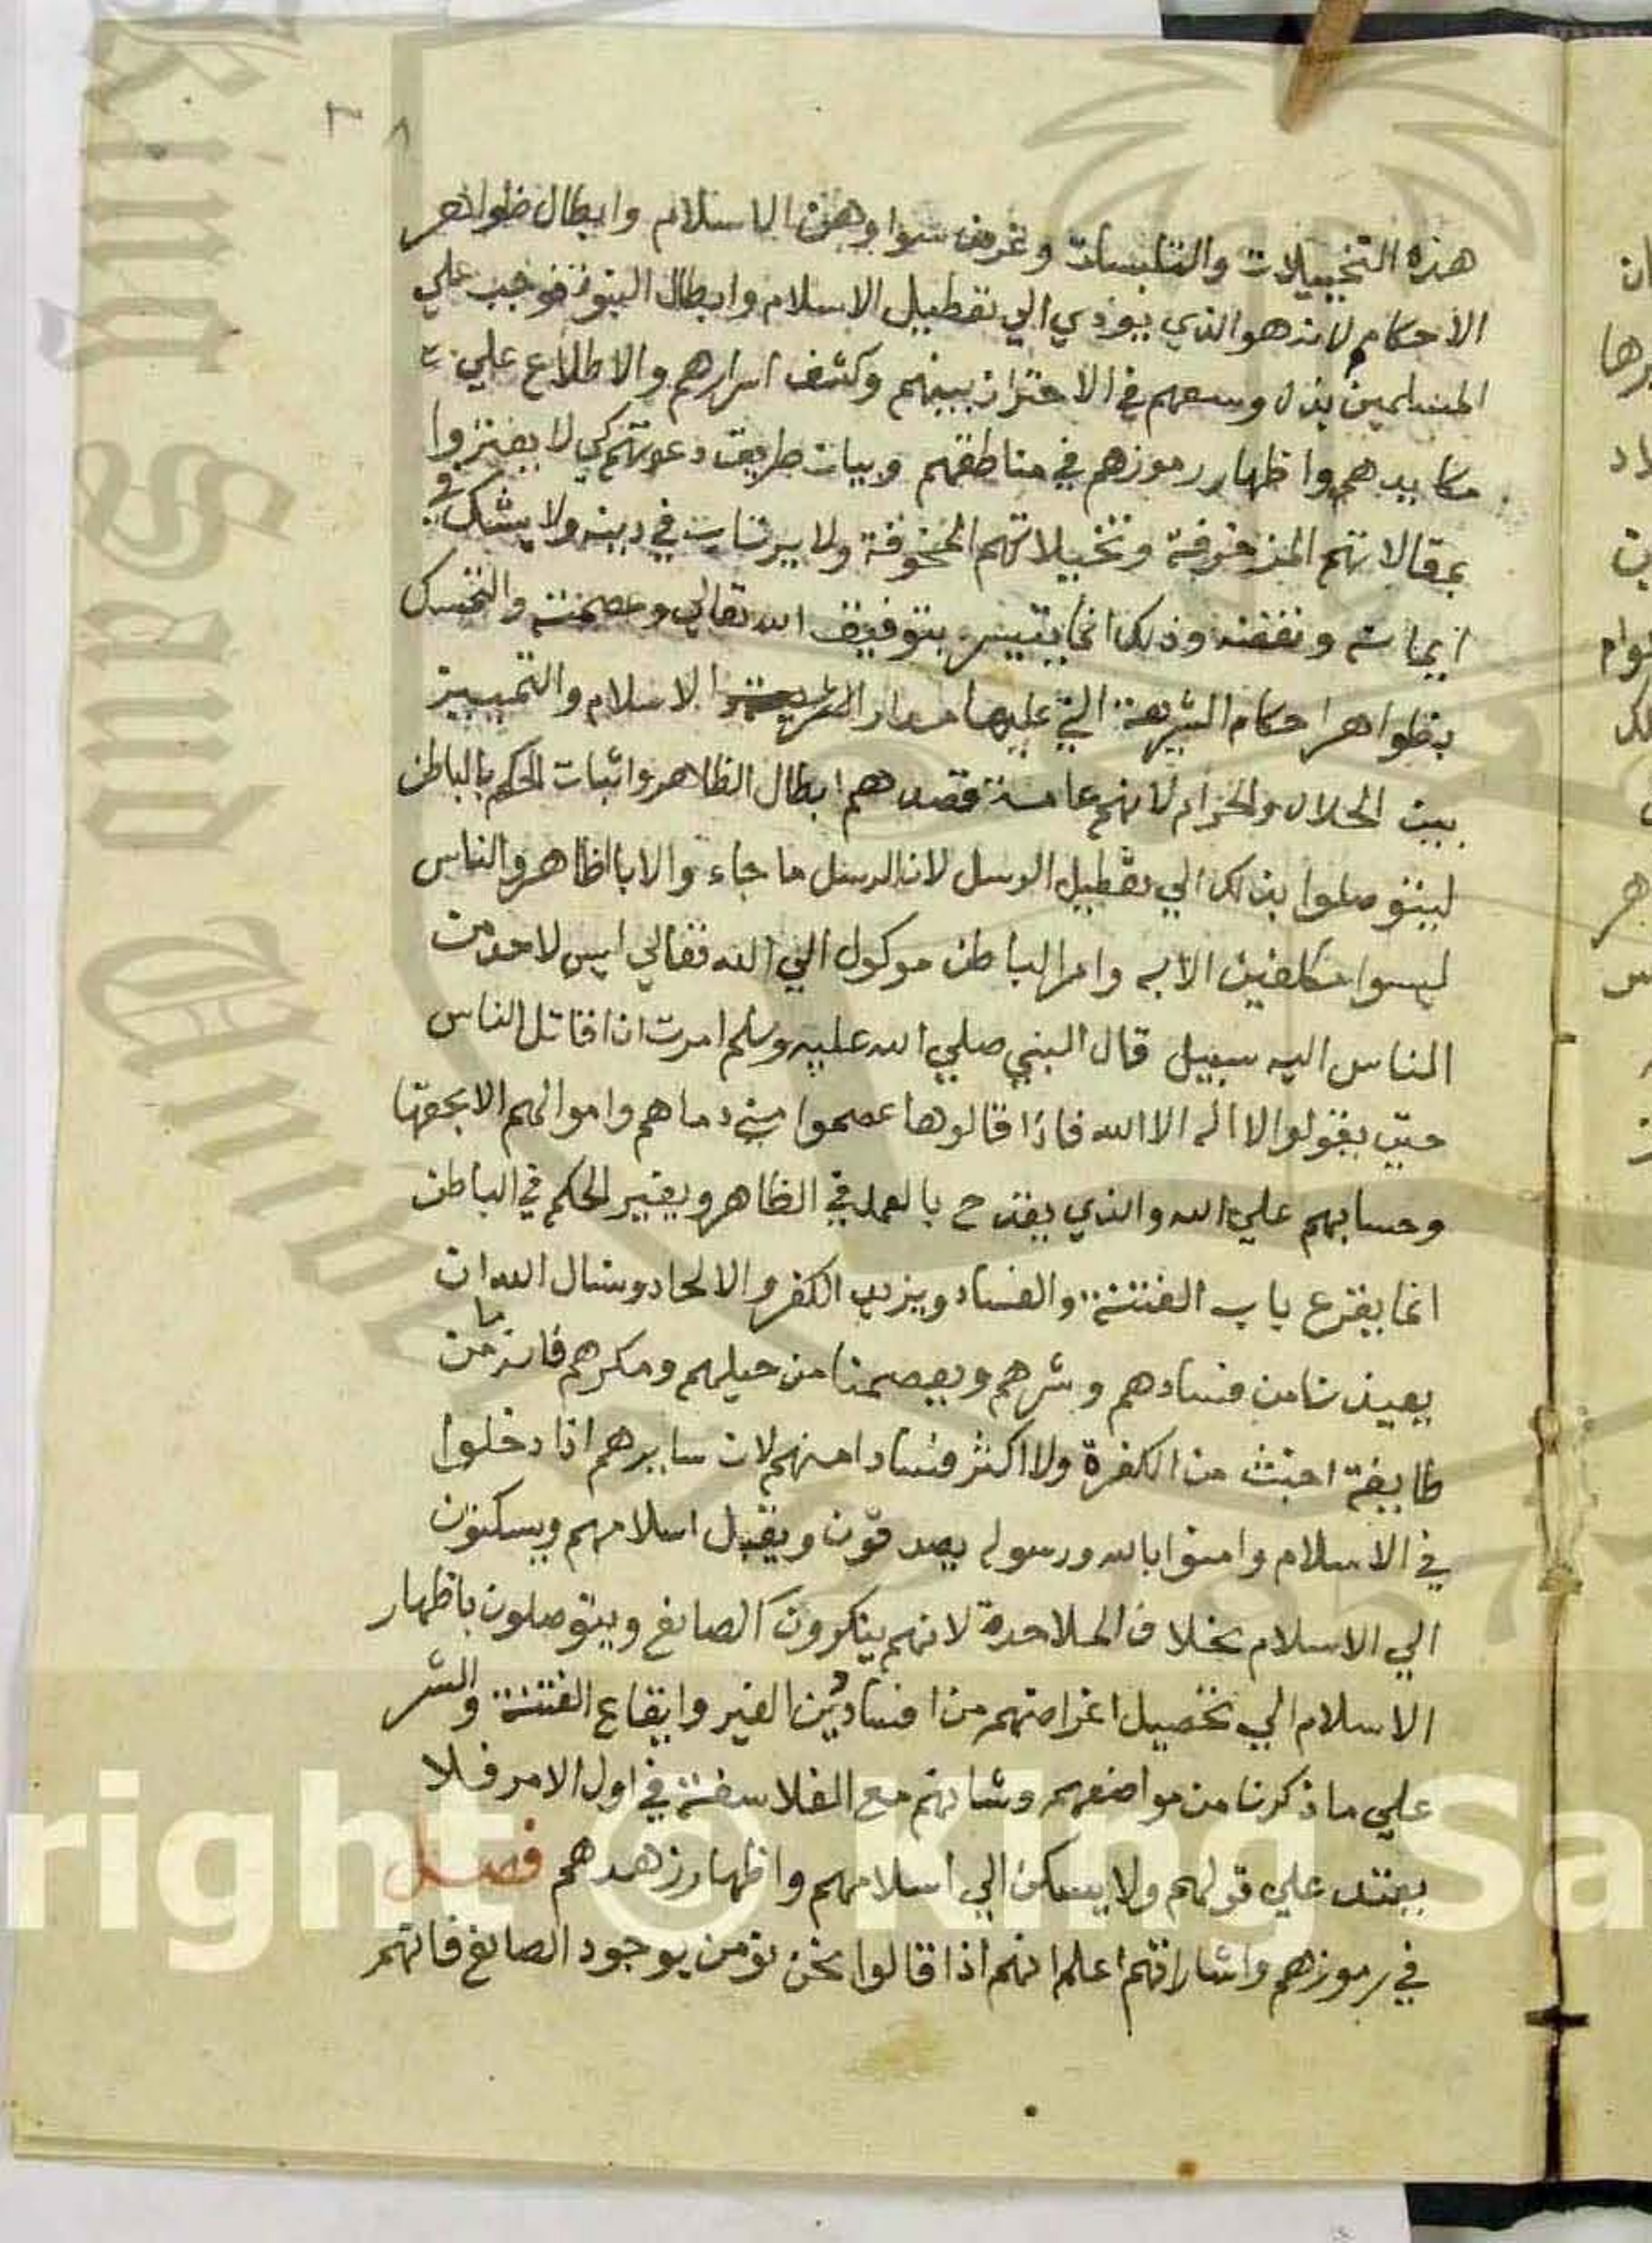 هذه التخييلات والتلبيسات وغرض سوا وهن الاسلام وابطال ظواهر
الاحكام لانه هو الذي يودي الي تعطيل الاسلام وابطال النبوة فوجب علي
المسلمين بذل وسعهم في الاحتراز بينهم وكشف اسرارهم والاطلاع علي
مكايدهم واظهار رموزهم في مناطقهم وبيان طريقت دعوتهم كي لا يغتروا
بمقالاتهم المزخرفة وتخييلاتهم المخوفة ولا يرتاب في دينه ولا يشك في
ايمانه وثقته وذلك انما يتيسر بتوفيق الله تعالي وعصمته والتمسك
بظواهر احكام الشريعة التي عليها مدار الاسلام والتمييز
بين الحلال والحرام لانهم عامة قصدهم ابطال الظاهر واثبات الحكم بالباطن
ليتوصلوا بذلك الي تعطيل الرسل لان الرسل ما جاءوا الا بالظاهر والناس
ليسوا مكلفين الا به وامر الباطن موكول الي الله تعالي ليس لاحد من
الناس اليه سبيل قال النبي صلي الله عليه وسلم امرت ان اقاتل الناس
حتي يقولوا لا اله الا الله فاذا قالوها عصموا مني دماهم واموالهم الا بحقها
وحسابهم علي الله والذي يقدح بالعمل في الظاهر ويغير الحكم في الباطن
انما يقرع باب الفتنة والفساد ويزيد الكفر والالحاد ونسال الله ان
يعيذنا من فسادهم وشرهم ويعصمنا من حيلهم ومكرهم فانه ما من
طايفة اخبث من الكفرة ولا اكثر فسادا منهم لان سايرهم اذا دخلوا
في الاسلام وامنوا بالله ورسوله يصدقون ويقبل اسلامهم ويسكنون
الي الاسلام بخلاف الملاحدة لانهم ينكرون الصانع ويتوصلون باظهار
الاسلام الي تحصيل اغراضهم من افساد دين الغير وايقاع الفتنة والشر
علي ما ذكرنا من مواضعهم وشانهم مع الفلاسفة في اول الامر فلا
يعتد علي قولهم ولا يسكن الي اسلامهم واظهار زهدهم فصل
في رموزهم واشاراتهم اعلم انهم اذا قالوا نحن نومن بوجود الصانع فانهم
right © King Sa
King Saud Univers
1957